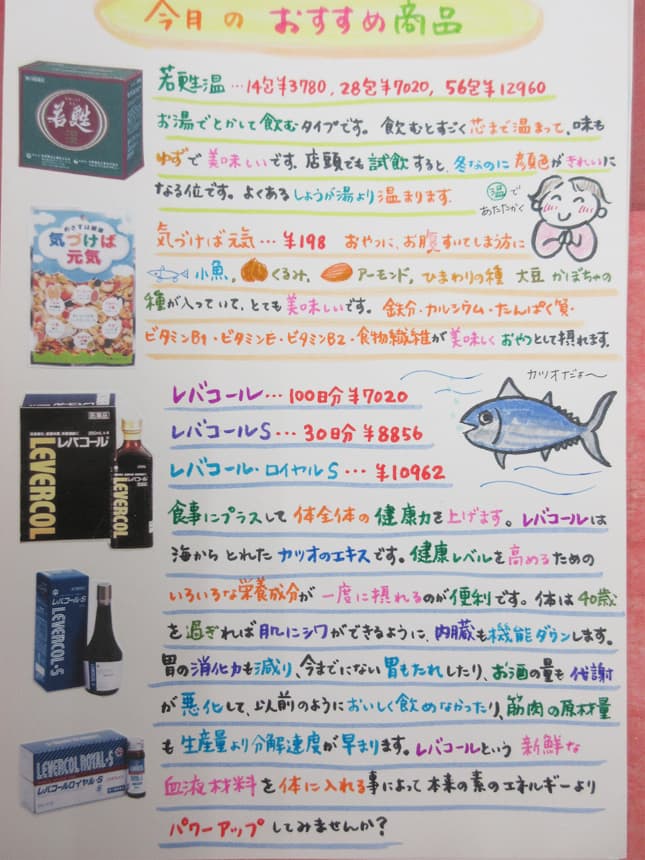 今月の おすすめ商品
若甦温…14包¥3780, 28包¥7020, 56包¥12960
お湯でとかして飲むタイプです。飲むとすごく芯まで温まって、味も
ゆずで美味しいです。店頭でも試飲すると、冬なのに顔色がきれいに
なる位です。よくあるしょうが湯より温まります。
温で
あたたかく
若甦
気づけば元気…¥198 おやつに、お腹すいてしま方に
小魚, くるみ, アーモンド, ひまわりの種 大豆 かぼちゃの
種が入っていて、とても美味しいです。鉄分・カルシウム・たんぱく質・
ビタミンB1・ビタミンE・ビタミンB2・食物繊維が美味しくおやつとして摂れます。
めざすは健康
気づけば
元気
レバコール…100日分¥7020
レバコールS…30日分¥8856
レバコール・ロイヤルS…¥10962
カツオだよ〜
食事にプラスして体全体の健康力を上げます。レバコールは
海からとれたカツオのエキスです。健康レベルを高めるための
いろいろな栄養成分が一度に摂れるのが便利です。体は40歳
を過ぎれば肌にシワができるように、内臓も機能ダウンします。
胃の消化力も減り、今までにない胃もたれしたり、お酒の量も代謝
が悪化して、以前のようにおいしく飲めなかったり、筋肉の原材量
も生産量より分解速度が早まります。レバコールという新鮮な
血液材料を体に入れる事によって本来の素のエネルギーより
パワーアップしてみませんか?
医薬品
レバコール
LEVERCOL
LEVERCOL
レバコール-S
LEVERCOL-S
LEVERCOL ROYAL-S
レバコールロイヤル-S